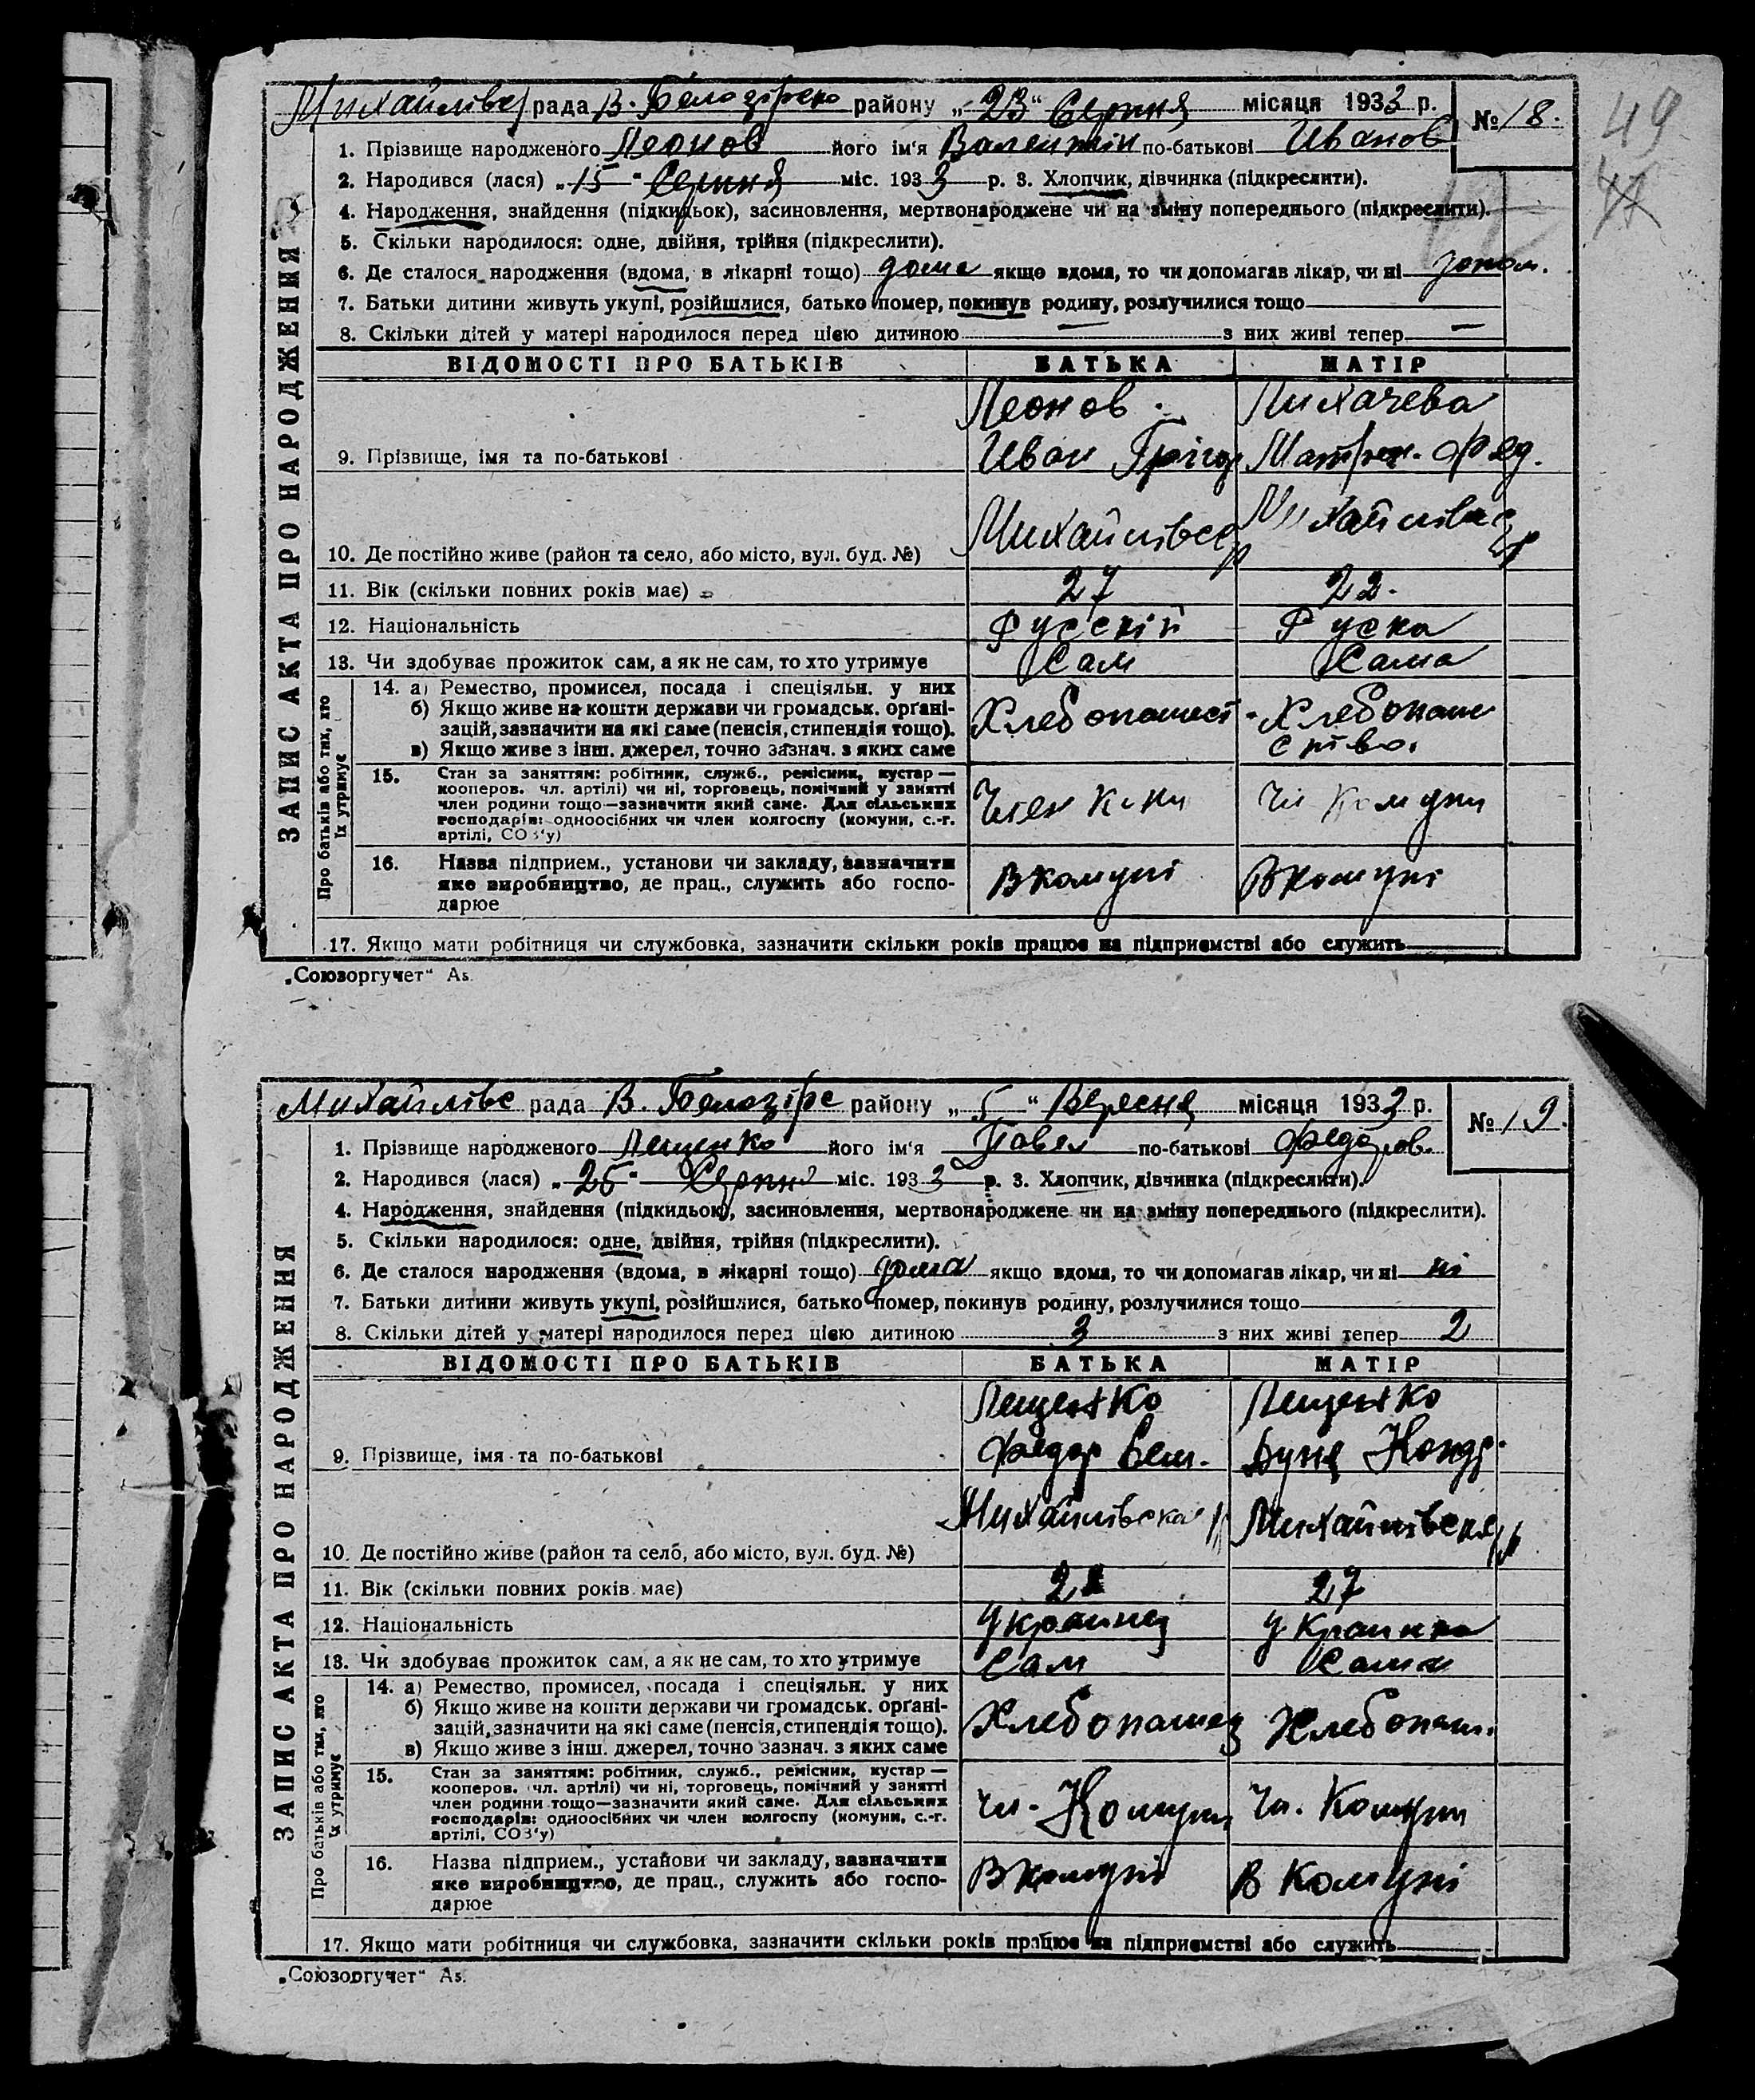 Михайлівс рада В. Белозірско району „23“ Серпня місяця 1933 р. № 18.
49
47
1. Прізвище народженого Леонов його ім'я Валентін по-батькові Иванов
2. Народився (лася) „15“ Серпня міс. 1933 р. 3. Хлопчик, дівчинка (підкреслити).
4. Народження, знайдення (підкидьок), засиновлення, мертвонароджене чи на зміну попереднього (підкреслити).
5. Скільки народилося: одне, двійня, трійня (підкреслити).
6. Де сталося народження (вдома, в лікарні тощо) дома якщо вдома, то чи допомагав лікар, чи ні допом.
7. Батьки дитини живуть укупі, розійшлися, батько помер, покинув родину, розлучилися тощо
8. Скільки дітей у матері народилося перед цією дитиною — з них живі тепер —
ЗАПИС АКТА ПРО НАРОДЖЕННЯ
ВІДОМОСТІ ПРО БАТЬКІВ БАТЬКА МАТІР
Леонов. Лихачева
9. Прізвище, імя та по-батькові Иван Грігор Матрен. Фед.
10. Де постійно живе (район та село, або місто, вул. буд. №) Михайлівс Михайлівс
11. Вік (скільки повних років має) 27 22.
12. Національність Русскій Руска
13. Чи здобуває прожиток сам, а як не сам, то хто утримує Сам Сама
Про батьків або тих, хто їх утримує
14. а) Ремество, промисел, посада і спеціяльн. у них
б) Якщо живе на кошти держави чи громадськ. орґані-
зацій, зазначити на які саме (пенсія, стипендія тощо). Хлебопашест Хлебопаш
в) Якщо живе з інш. джерел, точно зазнач. з яких саме ство.
15. Стан за заняттям: робітник, служб., ремісник, кустар —
кооперов. чл. артілі) чи ні, торговець, помічний у занятті
член родини тощо—зазначити який саме. Для сільських Член Ком Чл Комуни
господарів: одноосібних чи член колгоспу (комуни, с.-г.
артілі, СОЗ'у)
16. Назва підприєм., установи чи закладу, зазначити
яке виробництво, де прац., служить або госпо- В комуні В комуні
дарює
17. Якщо мати робітниця чи службовка, зазначити скільки років працює на підприємстві або служить
„Союзоргучет“ Аs.
Михайлівс рада В. Белозірс району „5“ Вересня місяця 1933 р. № 19.
1. Прізвище народженого Лещенко його ім'я Павел по-батькові Федоров.
2. Народився (лася) „25“ Серпня міс. 1933 р. 3. Хлопчик, дівчинка (підкреслити).
4. Народження, знайдення (підкидьок), засиновлення, мертвонароджене чи на зміну попереднього (підкреслити).
5. Скільки народилося: одне, двійня, трійня (підкреслити).
6. Де сталося народження (вдома, в лікарні тощо) дома якщо вдома, то чи допомагав лікар, чи ні ні
7. Батьки дитини живуть укупі, розійшлися, батько помер, покинув родину, розлучилися тощо
8. Скільки дітей у матері народилося перед цією дитиною 3 з них живі тепер 2
ЗАПИС АКТА ПРО НАРОДЖЕННЯ
ВІДОМОСТІ ПРО БАТЬКІВ БАТЬКА МАТІР
Лещенко Лещенко
9. Прізвище, імя та по-батькові Федор Сем. Дуня Кондр.
10. Де постійно живе (район та село, або місто, вул. буд. №) Михайлівска Михайлівска
11. Вік (скільки повних років має) 27
12. Національність Украинец Украинка
13. Чи здобуває прожиток сам, а як не сам, то хто утримує Сам Сама
Про батьків або тих, хто їх утримує
14. а) Ремество, промисел, посада і спеціяльн. у них
б) Якщо живе на кошти держави чи громадськ. орґані-
зацій, зазначити на які саме (пенсія, стипендія тощо). Хлебопашец Хлебопаш.
в) Якщо живе з інш. джерел, точно зазнач. з яких саме
15. Стан за заняттям: робітник, служб., ремісник, кустар —
кооперов. чл. артілі) чи ні, торговець, помічний у занятті
член родини тощо—зазначити який саме. Для сільських чл. Комуни Чл. Комуни
господарів: одноосібних чи член колгоспу (комуни, с.-г.
артілі, СОЗ'у)
16. Назва підприєм., установи чи закладу, зазначити
яке виробництво, де прац., служить або госпо- В комуні В Комуні
дарює
17. Якщо мати робітниця чи службовка, зазначити скільки років працює на підприємстві або служить
„Союзоргучет“ Аs.